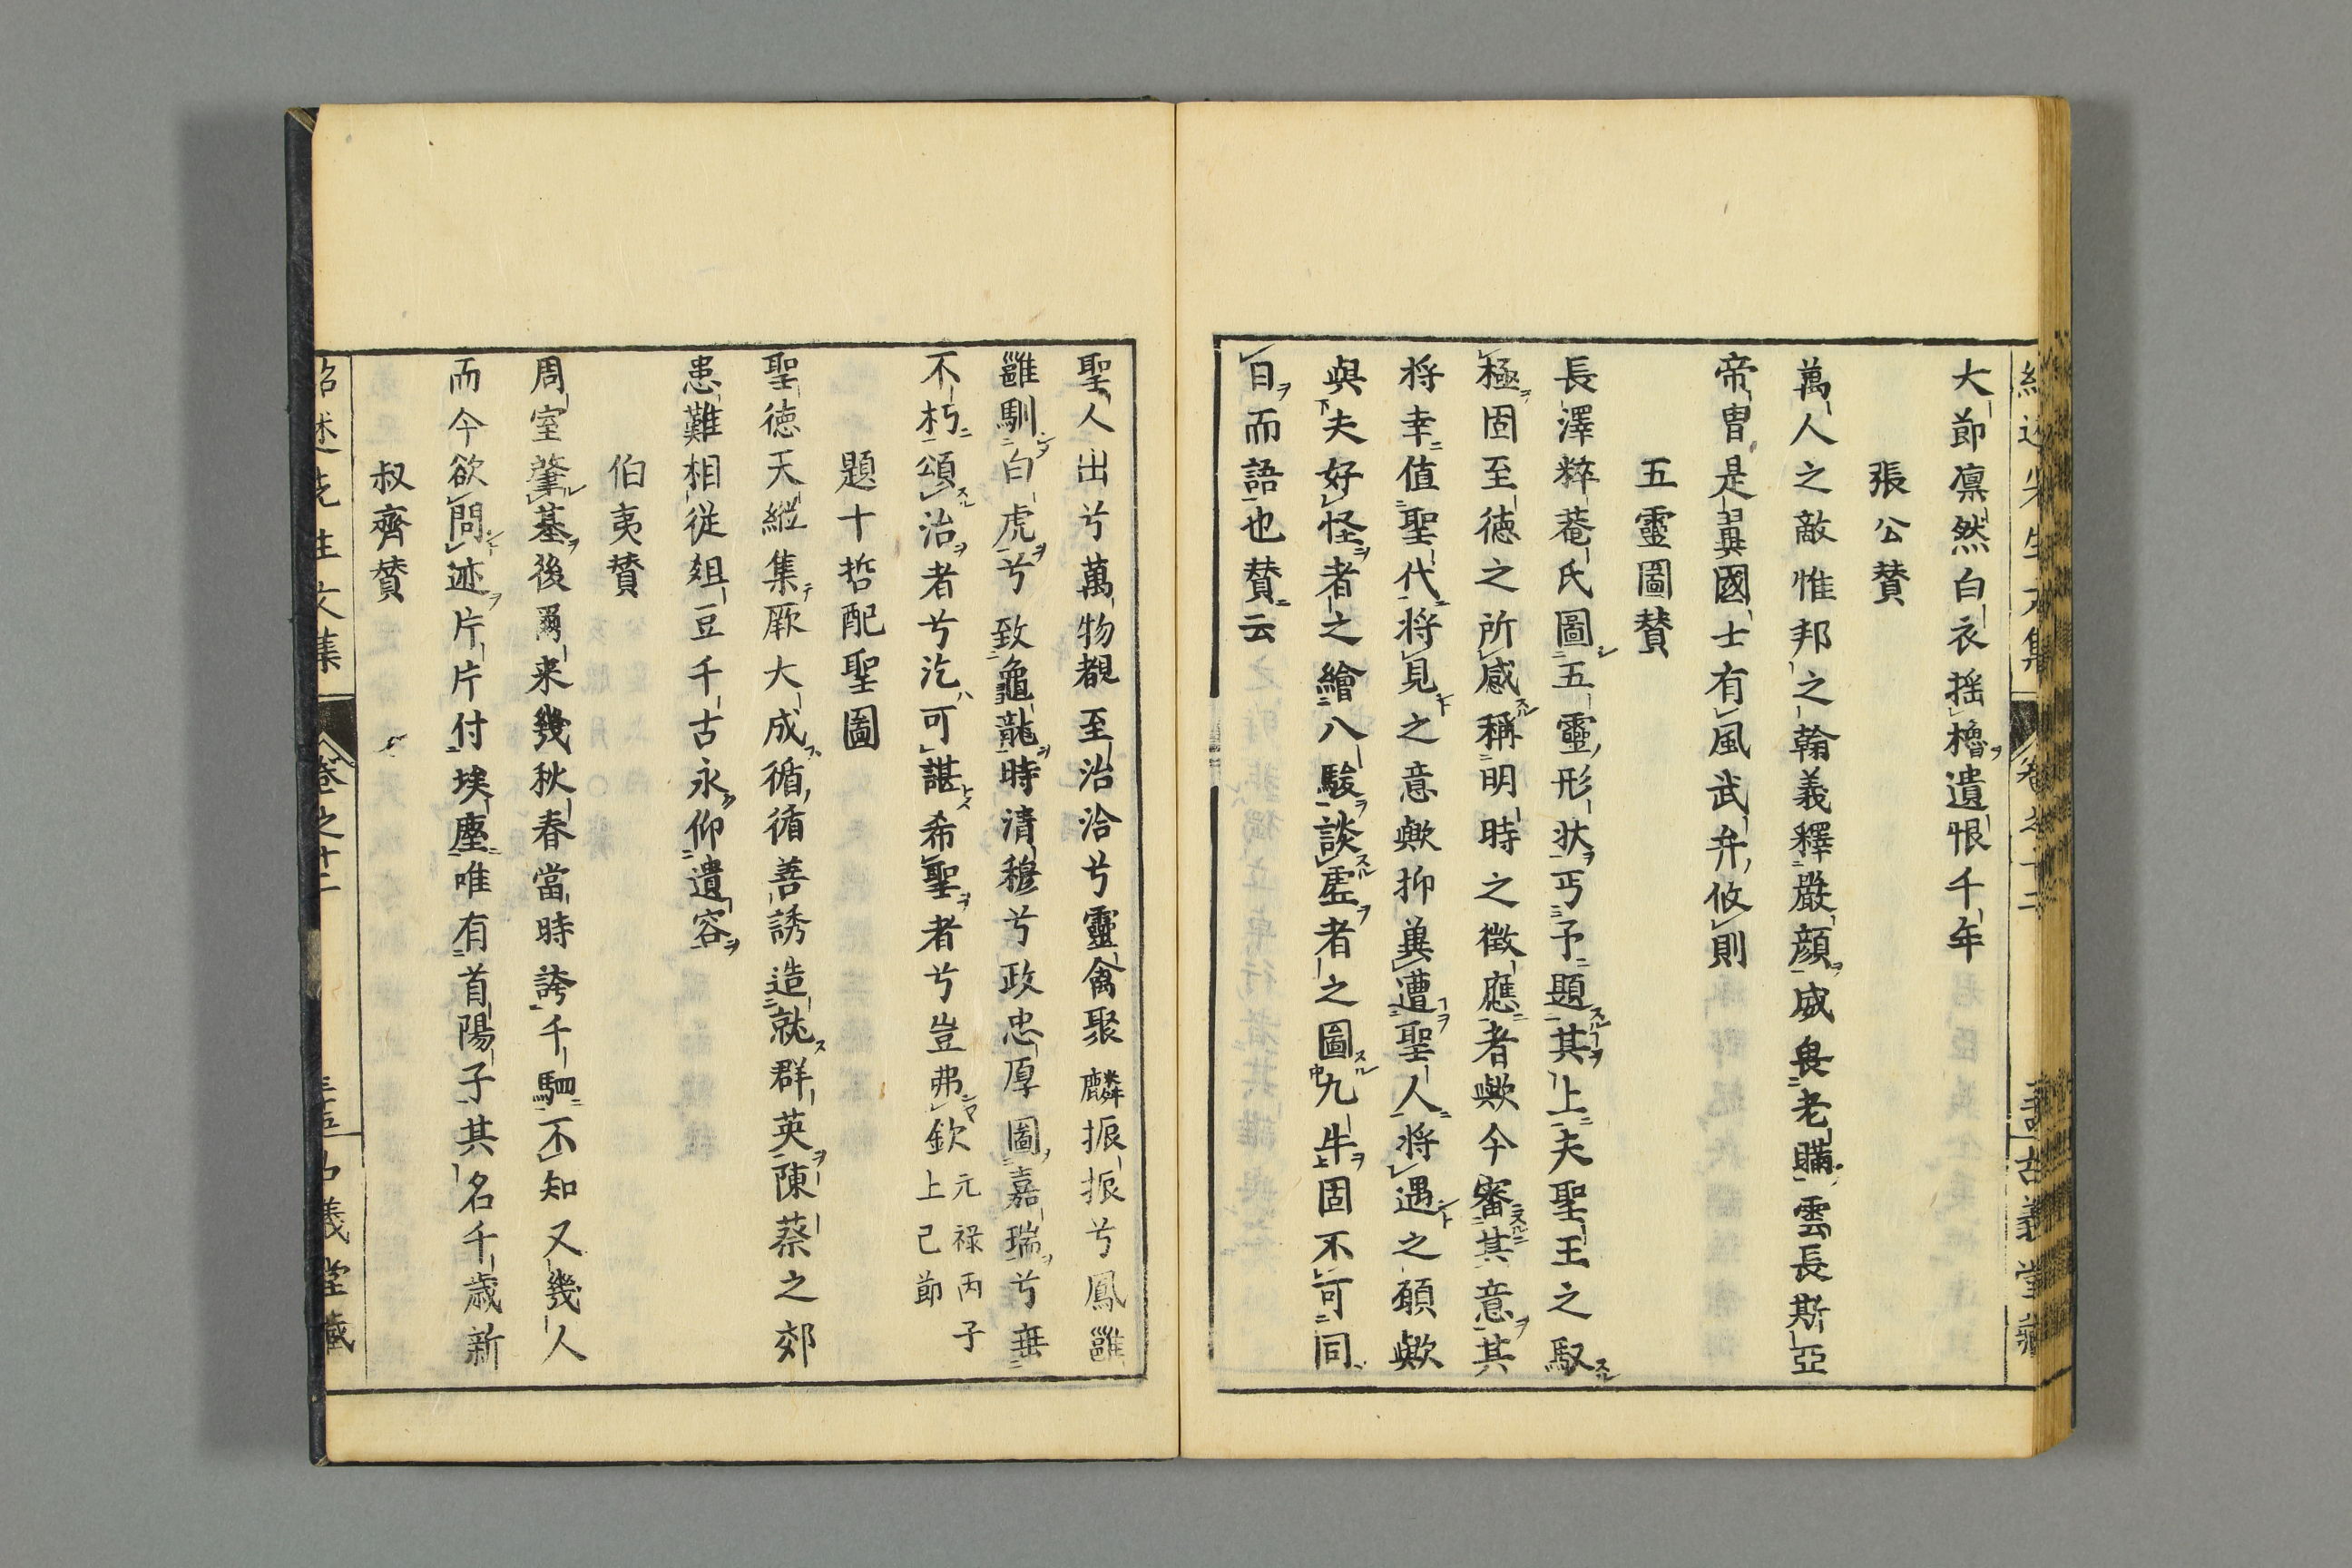 大節凛然白衣揺櫓遺恨千年
張公賛
萬人之敵惟邦之翰義釋嚴顔威喪老瞞雲長斯亞
帝胄是翼國士有風武弁攸則
五靈圖賛
長澤粹菴氏圖五靈形状丐予題其上夫聖王之馭
極固至徳之所感稱明時之徴應者歟今審其意其
将幸值聖代将見之意歟抑兾遭聖人将遇之願歟
與夫好怪者之繪八駿談虚者之圖九牛固不可同
日而語也賛云
聖人出兮萬物覩至治洽兮靈禽聚麟振振兮鳳雝
雝馴白虎兮致龜龍時清穆兮政忠厚圖嘉瑞兮垂
不朽頌治者兮汔可諶希聖者兮豈弗欽元禄丙子
上巳節
題十哲配聖圖
聖徳天縦集厥大成循循善誘造就群英陳蔡之郊
患難相従俎豆千古永仰遺容
伯夷賛
周室肇基後爾来幾秋春當時誇千駟不知又幾人
而今欲問迹片片付埃塵唯有首陽子其名千歳新
叔齊賛
紹述先生文集 卷之十二 古義堂藏